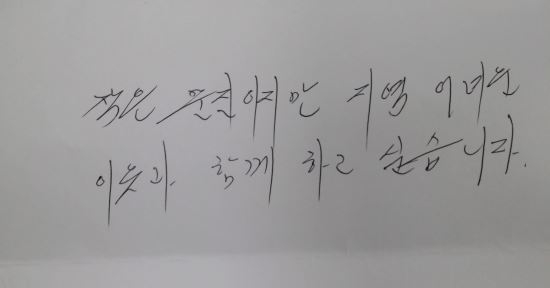 작은 물질이지만 지역 어려운
이웃과 함께 하고 싶습니다.